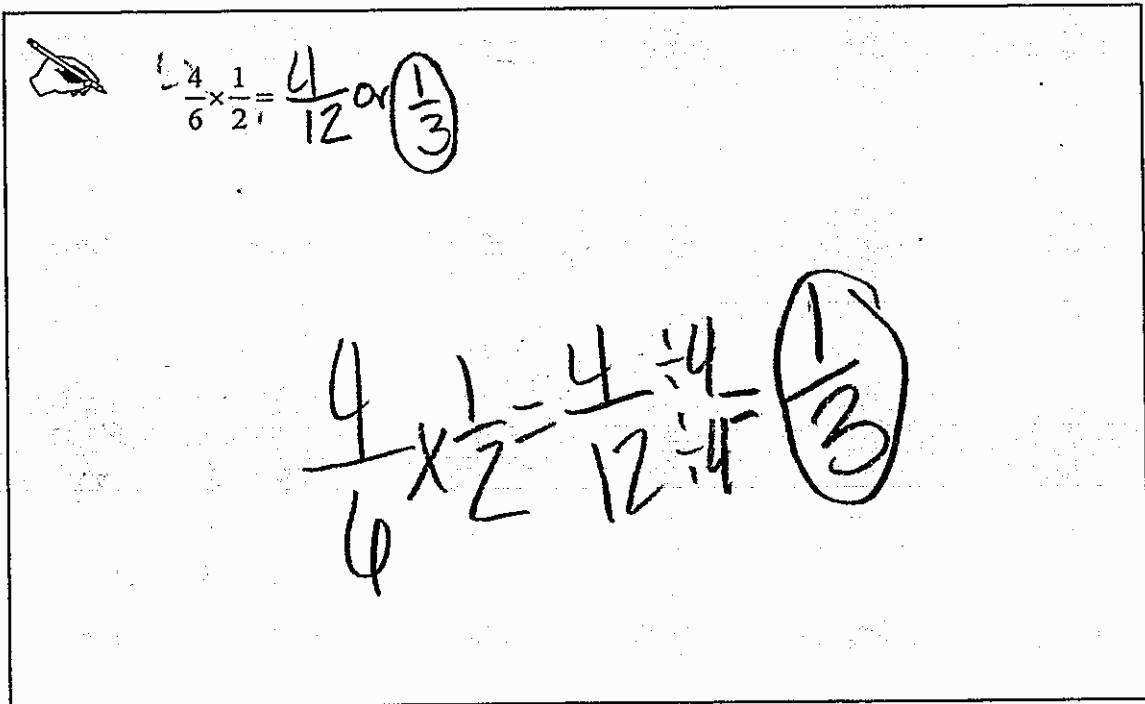 4/6 × 1/2 = 4/12 or 1/3
4/6 × 1/2 = 4/12 ÷4/÷4 = 1/3